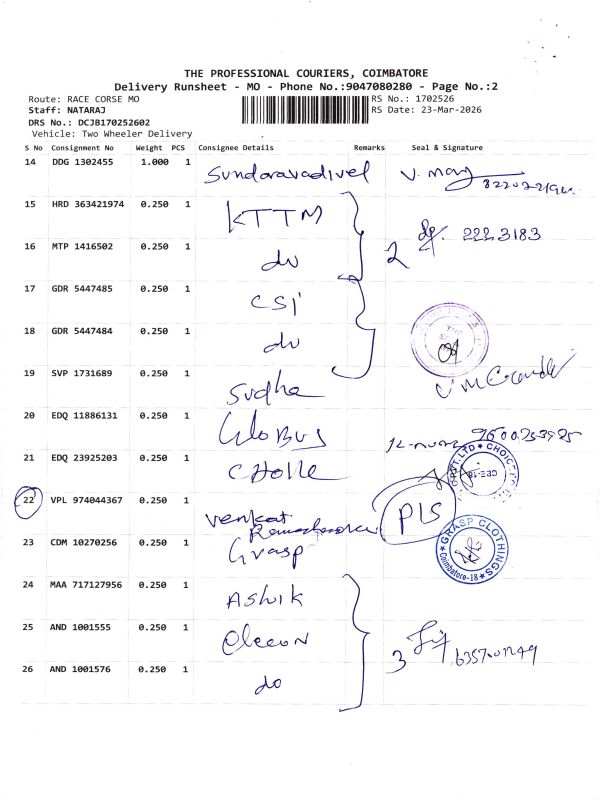 THE PROFESSIONAL COURIERS, COIMBATORE
Delivery Runsheet - MO - Phone No.:9047080280 - Page No.:2
Route: RACE CORSE MO
RS No.: 1702526
Staff: NATARAJ
RS Date: 23-Mar-2026
DRS No.: DCJB170252602
Vehicle: Two Wheeler Delivery
S No Consignment No Weight PCS Consignee Details Remarks Seal & Signature
14 DDG 1302455 1.000 1 Sundaravadivel
15 HRD 363421974 0.250 1 KTTM
16 MTP 1416502 0.250 1 do 2 222 3183
17 GDR 5447485 0.250 1 CSI
18 GDR 5447484 0.250 1 do
19 SVP 1731689 0.250 1 Sudha
20 EDQ 11886131 0.250 1 Globus
21 EDQ 23925203 0.250 1
22 VPL 974044367 0.250 1 Venkat PLS
23 CDM 10270256 0.250 1 Grasp
GRASP CLOTHINGS
Coimbatore-18
24 MAA 717127956 0.250 1 Ashik
25 AND 1001555 0.250 1 3
26 AND 1001576 0.250 1 do